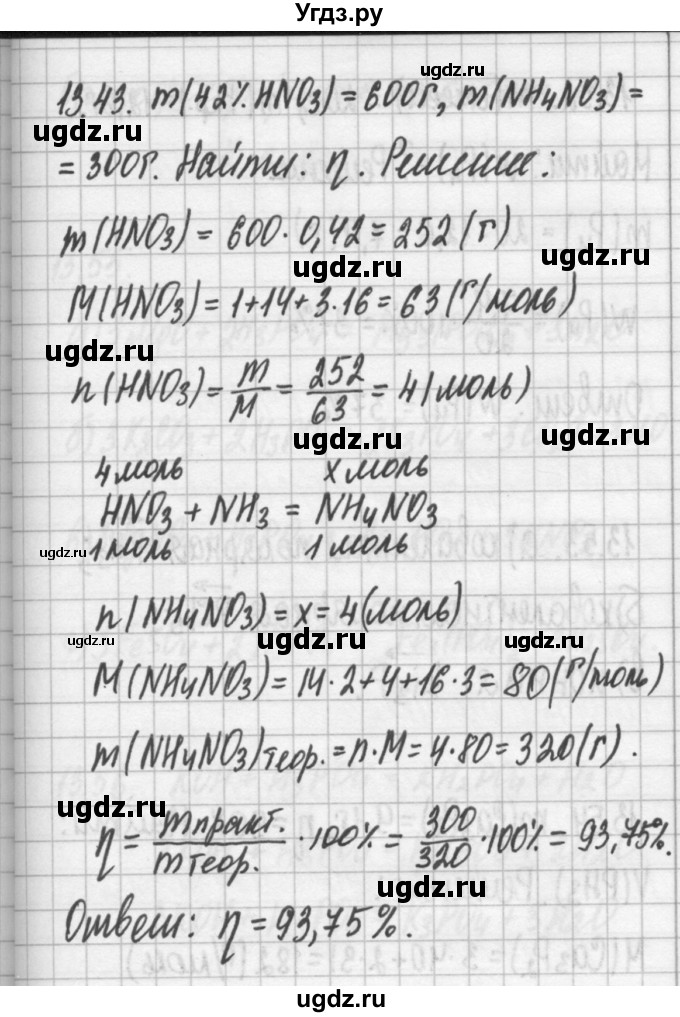 Угдз.ру
ugdz.ru
13.43. m(42% HNO₃) = 600г, m(NH₄NO₃) =
ugdz.ru
= 300г. Найти: η. Решение:
m(HNO₃) = 600 · 0,42 = 252 (г)
ugdz.ru ugdz.ru
M(HNO₃) = 1+14+3·16 = 63 (г/моль)
ugdz.ru
n(HNO₃) = m/M = 252/63 = 4 (моль)
ugdz.ru ugdz.ru
4 моль x моль
HNO₃ + NH₃ = NH₄NO₃
ugdz.ru 1 моль 1 моль ugdz.ru
n(NH₄NO₃) = x = 4 (моль)
ugdz.ru ugdz.ru ugdz.ru
M(NH₄NO₃) = 14·2+4+16·3 = 80 (г/моль)
m(NH₄NO₃)теор. = n·M = 4·80 = 320 (г).
ugdz.ru ugdz.ru
η = mпракт./mтеор. · 100% = 300/320 · 100% = 93,75%.
ugdz.ru
Ответ: η = 93,75%.
ugdz.ru ugdz.ru
ugdz.ru